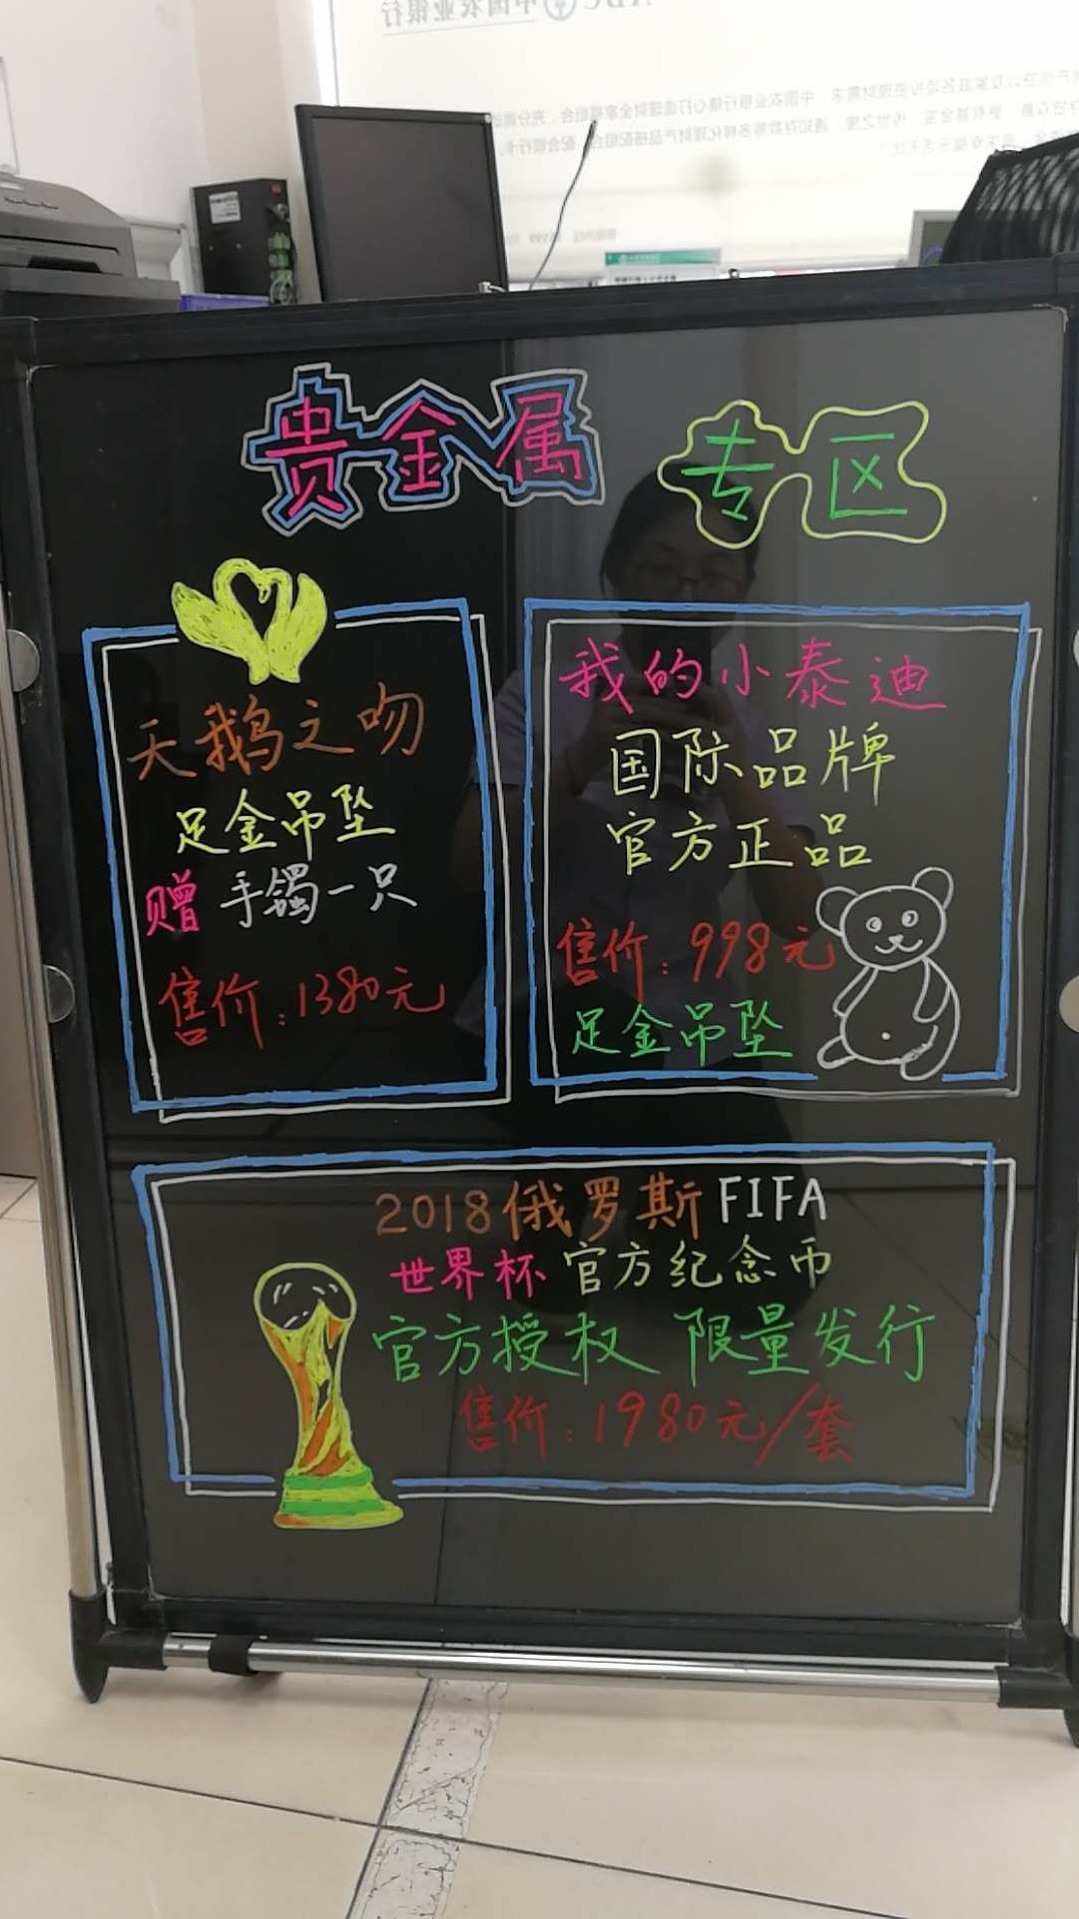 中国农业银行
贵金属 专区
天鹅之吻
足金吊坠
赠 手镯一只
售价:1380元
我的小泰迪
国际品牌
官方正品
售价:998元
足金吊坠
2018俄罗斯FIFA
世界杯 官方纪念币
官方授权 限量发行
售价:1980元/套